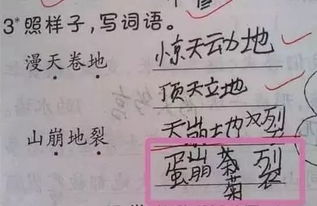 3*照样子，写词语。
漫天卷地 惊天动地
顶天立地
山崩地裂 天崩地裂
蛋崩菊裂
菊